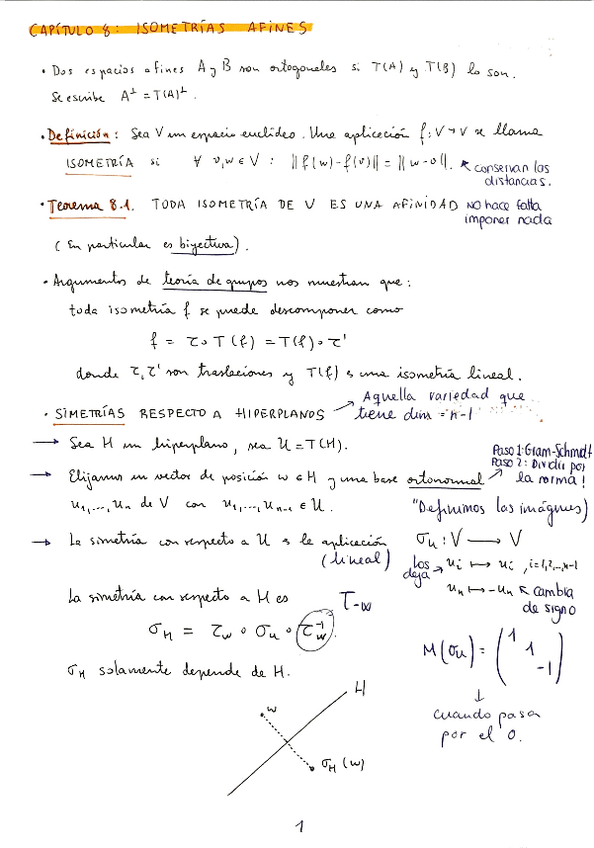 CAPÍTULO 8: ISOMETRÍAS AFINES
• Dos espacios afines A y B son ortogonales si T(A) y T(B) lo son.
Se escribe A^⊥ = T(A)^⊥.
• Definición: Sea V un espacio euclídeo. Una aplicación f: V→V se llama
ISOMETRÍA si ∀ v,w ∈ V : ||f(w)-f(v)|| = ||w-v||. ↖ conservan las
distancias.
• Teorema 8.1. TODA ISOMETRÍA DE V ES UNA AFINIDAD no hace falta
imponer nada
(En particular es biyectiva).
• Argumentos de teoría de grupos nos muestran que:
toda isometría f se puede descomponer como
f = τ∘T(f) = T(f)∘τ'
donde τ, τ' son traslaciones y T(f) es una isometría lineal.
• SIMETRÍAS RESPECTO A HIPERPLANOS → Aquella variedad que
tiene dim = n-1
→ Sea H un hiperplano, sea U = T(H).
→ Elijamos un vector de posición w ∈ H y una base ortonormal
Paso 1: Gram-Schmidt
Paso 2: Dividir por
la norma!
u₁,...,uₙ de V con u₁,...,uₙ₋₁ ∈ U.
"Definimos las imágenes)
→ La simetría con respecto a U es la aplicación
(lineal)
σ_U : V → V
Los deja → uᵢ ↦ uᵢ , i=1,2,...,n-1
uₙ ↦ -uₙ ↖ cambia
de signo
La simetría con respecto a H es
τ_-w
σ_H = τ_w ∘ σ_U ∘ τ_w^-1.
M(σ_U) = (1 1 -1)
σ_H solamente depende de H.
↓
cuando pasa
por el 0.
H
w
σ_H (w)
1